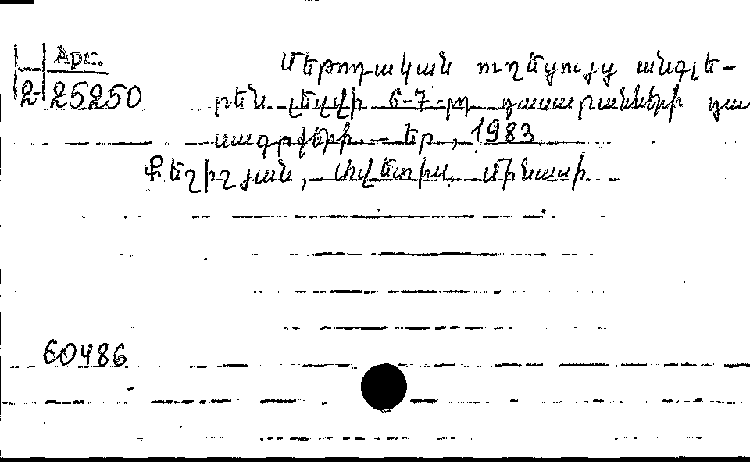 Арс.
2- 25250
Մեթոդական ուղեցույց անգլե-
րեն լեզվի 6-7-րդ դասարանների դա
սագրքերի. - Եր., 1983
Քեշիշյան, Սվետիս Մինասի
60486